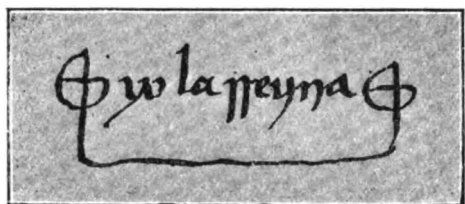 yo la rreyna